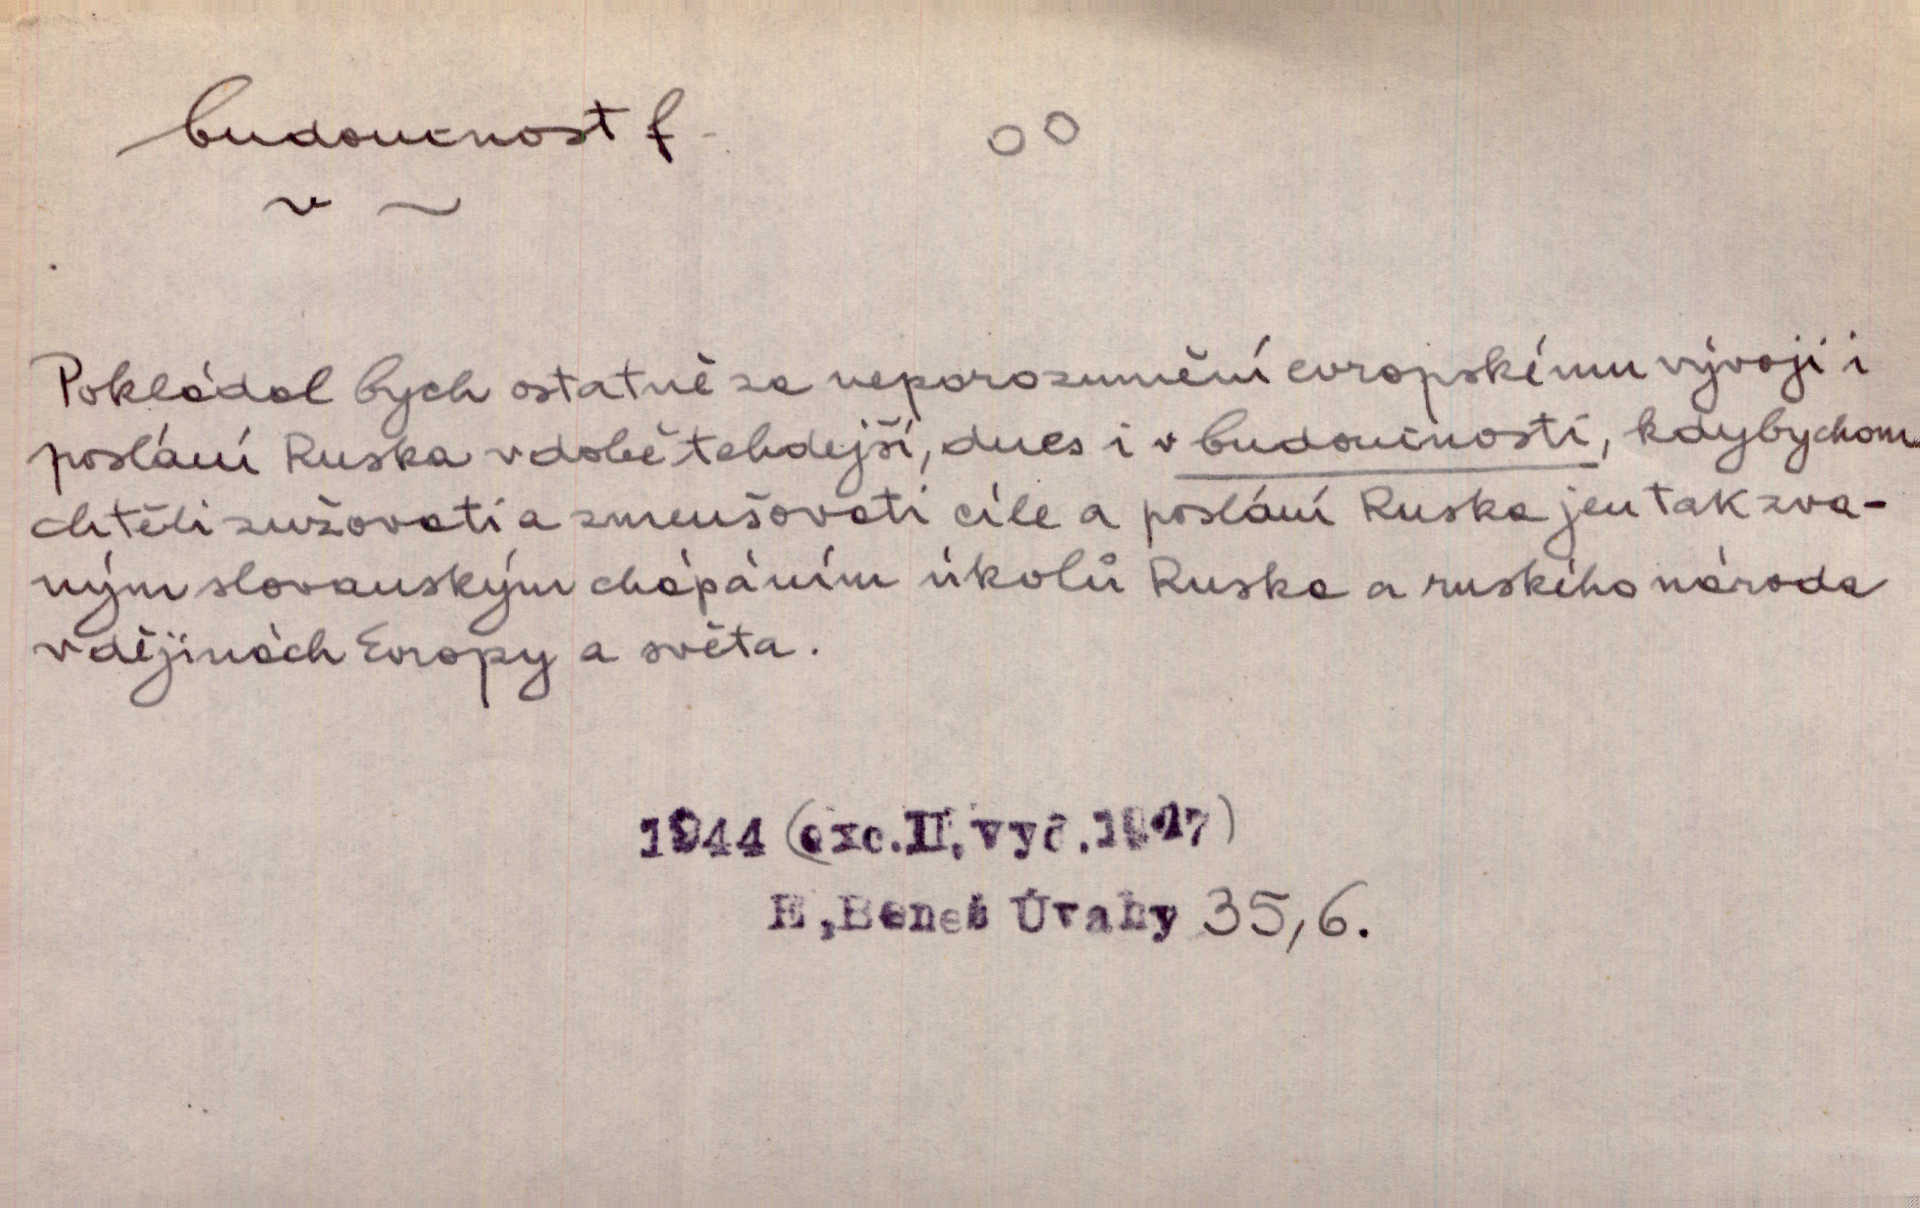 budoucnost f.
v ~
Pokládal bych ostatně za neporozumění evropskému vývoji i
poslání Ruska v době tehdejší, dnes i v budoucnosti, kdybychom
chtěli zužovati a zmenšovati cíle a poslání Ruska jen tak zva-
ným slovanským chápáním úkolů Ruska a ruského národa
v dějinách Evropy a světa.
1944 (exc. II. vyd. 1947)
E. Beneš Úvahy 35,6.